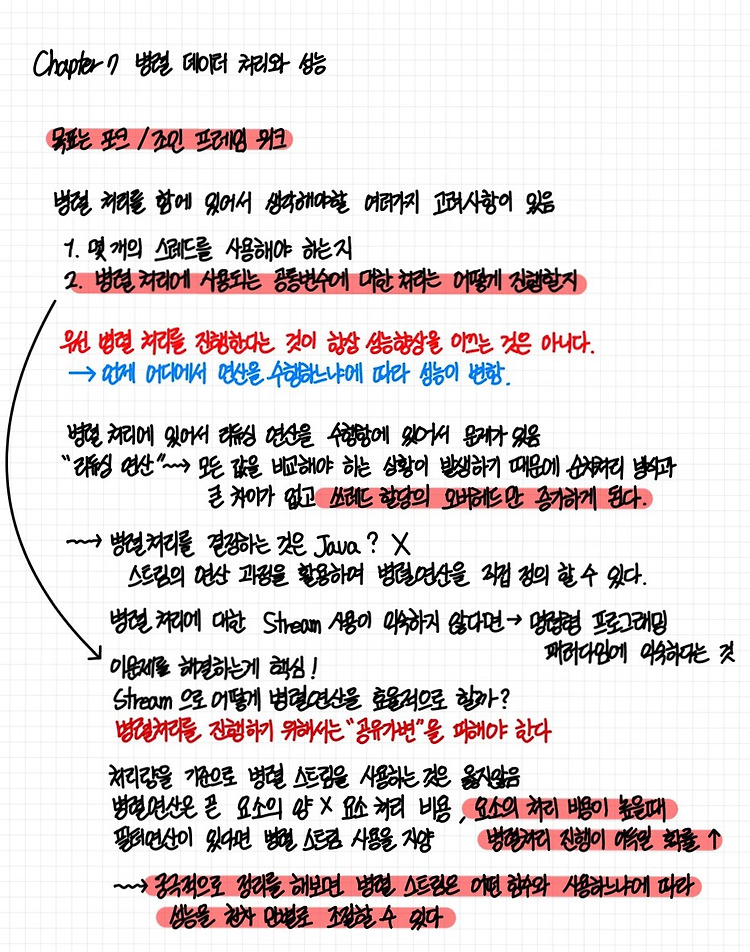 Chapter 7 병렬 데이터 처리와 성능
목표는 포크 / 조인 프레임 워크
병렬 처리를 함에 있어서 생각해야할 여러가지 고려사항이 있음
1. 몇 개의 스레드를 사용해야 하는지
2. 병렬 처리에 사용되는 공통변수에 대한 처리는 어떻게 진행할지
우선 병렬 처리를 진행한다는 것이 항상 성능향상을 이끄는 것은 아니다.
→ 언제 어디에서 연산을 수행하느냐에 따라 성능이 변함.
병렬 처리에 있어서 리듀싱 연산을 수행함에 있어서 문제가 있음
"리듀싱 연산" ~→ 모든 값을 비교해야 하는 상황이 발생하기 때문에 순차처리 방식과
큰 차이가 없고 쓰레드 할당의 오버헤드만 증가하게 된다.
~→ 병렬처리를 결정하는 것은 Java ? X
스트림의 연산 과정을 활용하여 병렬연산을 직접 정의 할 수 있다.
병렬 처리에 대한 Stream 사용이 익숙하지 않다면 → 명령형 프로그래밍
패러다임에 익숙하다는 것
이문제를 해결하는게 핵심 !
Stream 으로 어떻게 병렬연산을 효율적으로 할까 ?
병렬처리를 진행하기 위해서는 "공유가변"을 피해야 한다
처리량을 기준으로 병렬 스트림을 사용하는 것은 옳지않음
병렬연산은 곧 요소의 양 X 요소 처리 비용, 요소의 처리 비용이 높을때
필터연산이 있다면 병렬 스트림 사용을 지양 병렬처리 진행이 이득일 확률 ↑
~→ 궁극적으로 정리를 해보면 병렬 스트림은 어떤 함수와 사용하느냐에 따라
성능을 천차 만별로 조절할 수 있다